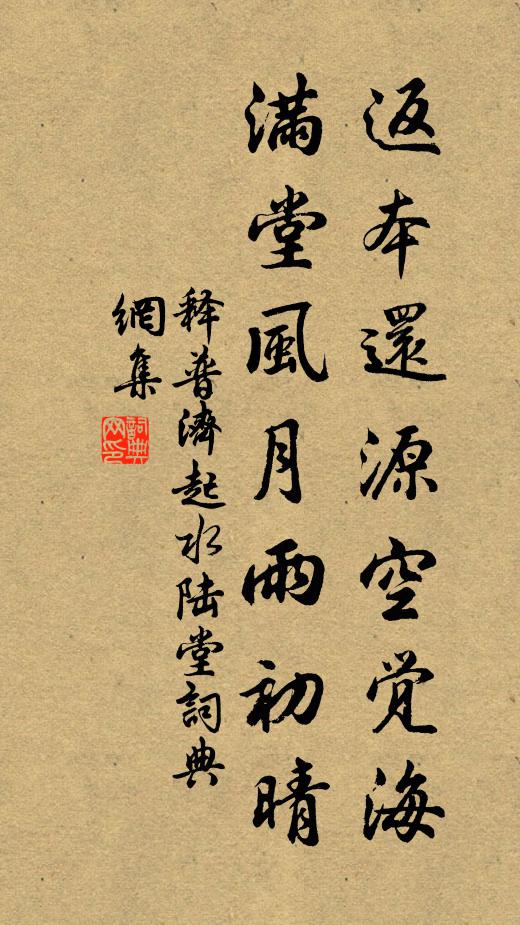 返本還源空觉海
满堂風月雨初晴
释普濟起水陆堂詞典
網集
詞典
网印